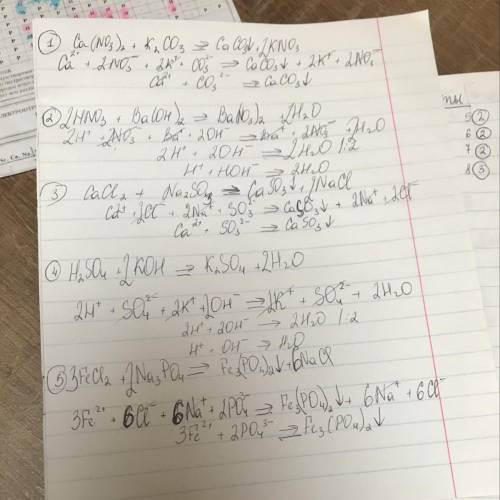 ① Ca(NO₃)₂ + K₂CO₃ ⇒ CaCO₃↓ + 2KNO₃
Ca²⁺ + 2NO₃⁻ + 2K⁺ + CO₃²⁻ ⇒ CaCO₃↓ + 2K⁺ + 2NO₃⁻
Ca²⁺ + CO₃²⁻ ⇒ CaCO₃↓
② 2HNO₃ + Ba(OH)₂ ⇒ Ba(NO₃)₂ + 2H₂O
2H⁺ + 2NO₃⁻ + Ba²⁺ + 2OH⁻ ⇒ Ba²⁺ + 2NO₃⁻ + 2H₂O
2H⁺ + 2OH⁻ ⇒ 2H₂O | :2
H⁺ + OH⁻ ⇒ H₂O
③ CaCl₂ + Na₂SO₃ ⇒ CaSO₃↓ + 2NaCl
Ca²⁺ + 2Cl⁻ + 2Na⁺ + SO₃²⁻ ⇒ CaSO₃↓ + 2Na⁺ + 2Cl⁻
Ca²⁺ + SO₃²⁻ → CaSO₃↓
④ H₂SO₄ + 2KOH ⇒ K₂SO₄ + 2H₂O
2H⁺ + SO₄²⁻ + 2K⁺ + 2OH⁻ → 2K⁺ + SO₄²⁻ + 2H₂O
2H⁺ + 2OH⁻ → 2H₂O | :2
H⁺ + OH⁻ → H₂O
⑤ 3FeCl₂ + 2Na₃PO₄ ⇒ Fe₃(PO₄)₂↓ + 6NaCl
3Fe²⁺ + 6Cl⁻ + 6Na⁺ + 2PO₄³⁻ ⇒ Fe₃(PO₄)₂↓ + 6Na⁺ + 6Cl⁻
3Fe²⁺ + 2PO₄³⁻ ⇒ Fe₃(PO₄)₂↓
ты
5 ②
6 ②
7 ②
8 ③